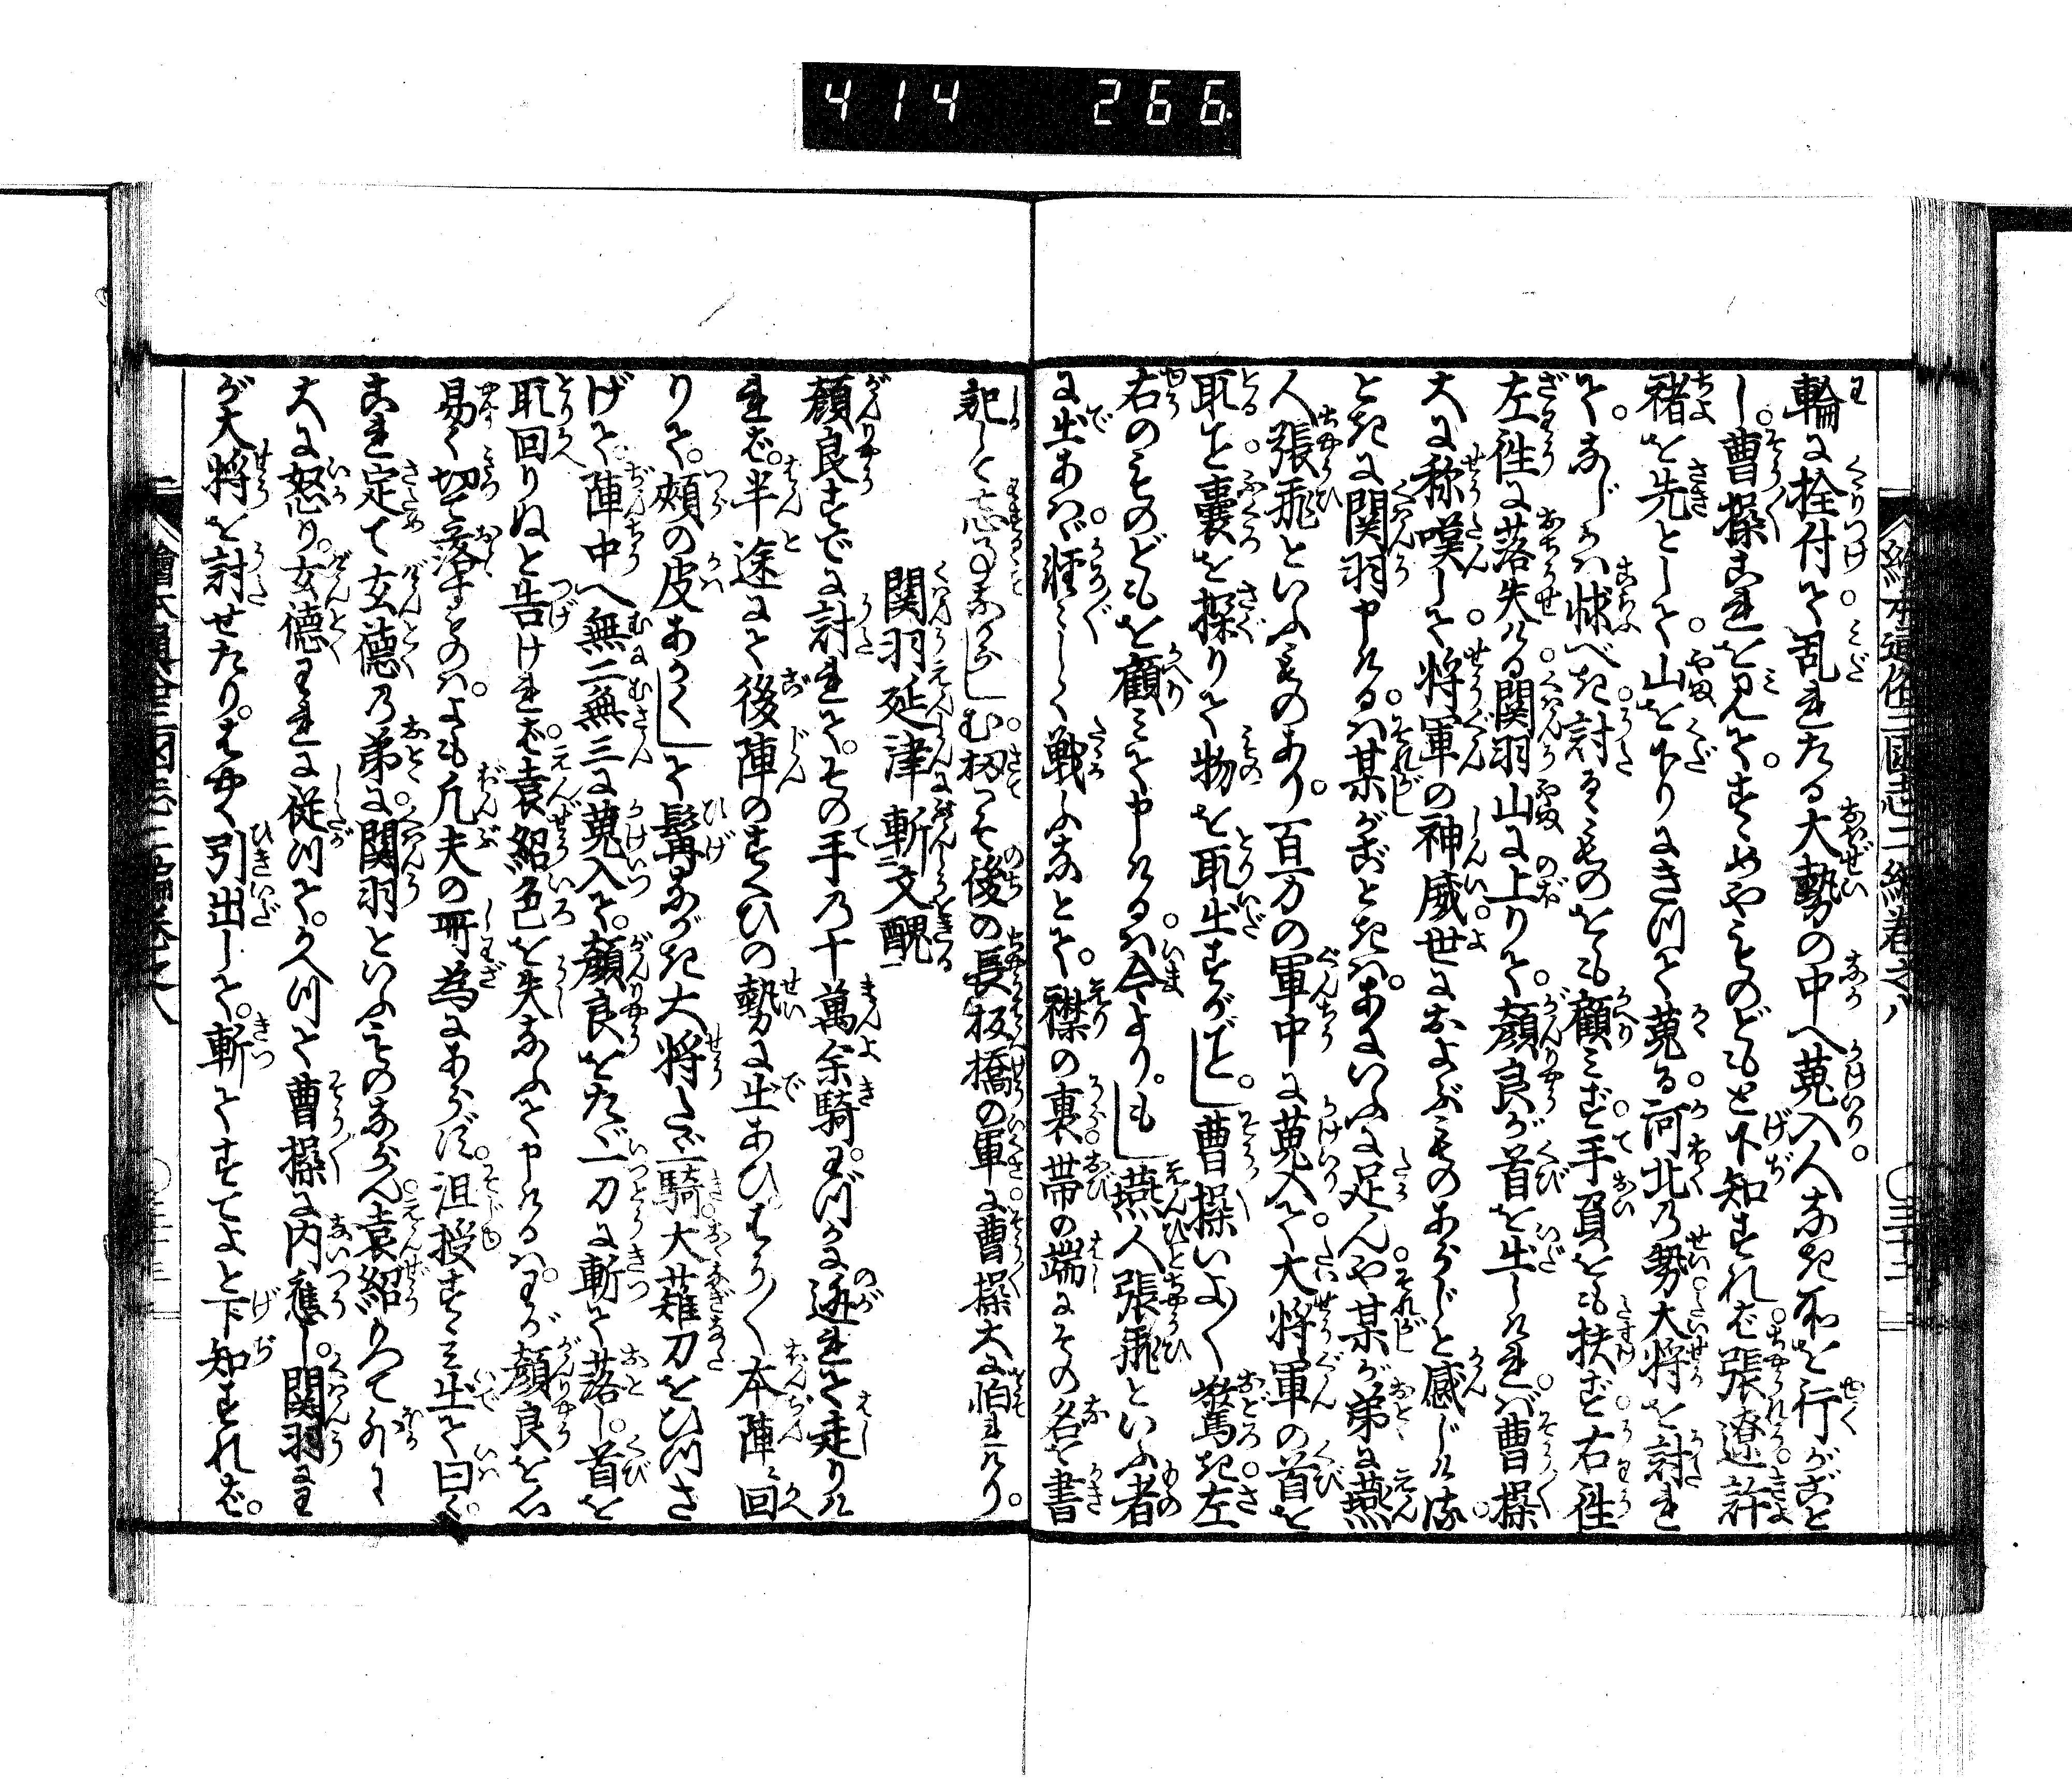 414 266
繪本通俗三國志二編巻之八 〇三十二
輪に拴付て乱れたる大勢の中へ蒐入人なき所を行がごと
し。曹操これを見て。すゝめやものどもと下知すれば張遼許
褚を先として山を下りまき川て蒐る河北の勢大将を討れ
て。なじかは怺べき討るゝものをも顧みず手負をも扶ず右往
左往に落失ける関羽山に上りて。顔良が首を出しければ曹操
大に称嘆して将軍の神威世におよぶものあらじと感じける。
ときに関羽申けるは某がごときは。あにいふに足んや某が弟に燕
人張飛といふものあり。百万の軍中に蒐入て大将軍の首を
取こと嚢を探りて物を取出すがごとし。曹操いよ〳〵驚き左
右のものどもを顧みて申けるは今より。もし燕人張飛といふ者
に出あはゞ軽〳〵しく戦ふなとて。襟の裏帯の端にその名を書
記して忘るゝことなからしむ扨こそ後の長坂橋の軍に曹操大に怕れけり。
関羽延津斬文醜
顔良すでに討れて。その手の十萬余騎。わづかに逃れて走りけ
れば。半途にて後陣のすくひの勢に出あひはう〳〵本陣に回
りて。頰の皮あかくして髯ながき大将たゞ一騎大薙刀をひつさ
げて陣中へ無二無三に蒐入て。顔良をたゞ一刀に斬て落し。首を
取回りぬと告ければ。袁紹色を失なふて申けるは。わが顔良を心
易く切て落すものは。よも凡夫の所為にあらじ。沮授すゝみ出て曰く。
これ定て玄徳の弟に関羽といふものならん袁紹かへつて
大に怒り。玄徳われに従川て。かへ川て曹操に内應し。関羽にわ
が大将を討せたり。はやく引出して。斬てすてよと下知すれば。